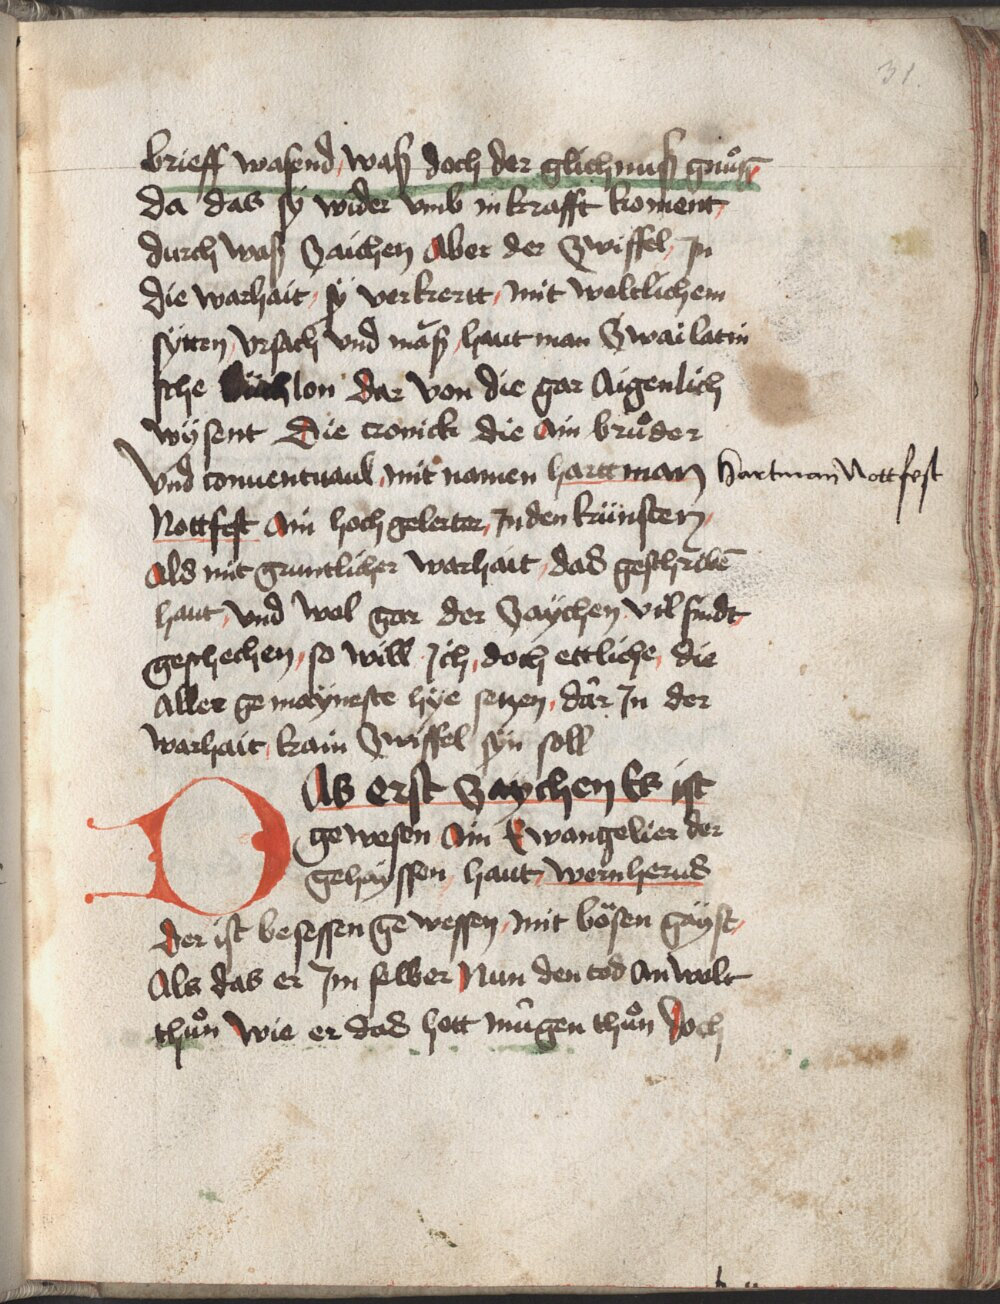 31
brieff wasend, waß doch der glichnuß gnuͦg
da das sy wider vmb in krafft koment,
durch waß Zaichen Aber der Zwiffel, Jn
die warhait, sÿ verkertt, mit weltlichem
sÿtten, vrsach vnd mäß, haut man Zwai latin
sche büchlon dar von die gar Aigenlich
wÿsent Die cronick die Ain bruͦder
Vnd conuentuaul, mit namen harttman
Hartman Nottfest
Nottfest Ain hoch gelerter, Jn den künsten,
Als mit gruntlicher warhait, das geschriben̄
haut, vnd wol gar der Zaÿchen vil sindt,
geschechen, so will Jch, doch ettliche, die
Aller gemaÿneste hÿe setzen, dar Jn der
warhait, kain Zwiffel sÿn soll
DAs erst Zaÿchen Es ist
gewesen Ain Ewangelier der
gehaÿssen, haut, wernherus
der ist besessen gewessen, mit bösen gaÿst,
Als das er Jm selber Nun den tod An wolt
thuͦn wie er das hett mügen thuͦn Doch